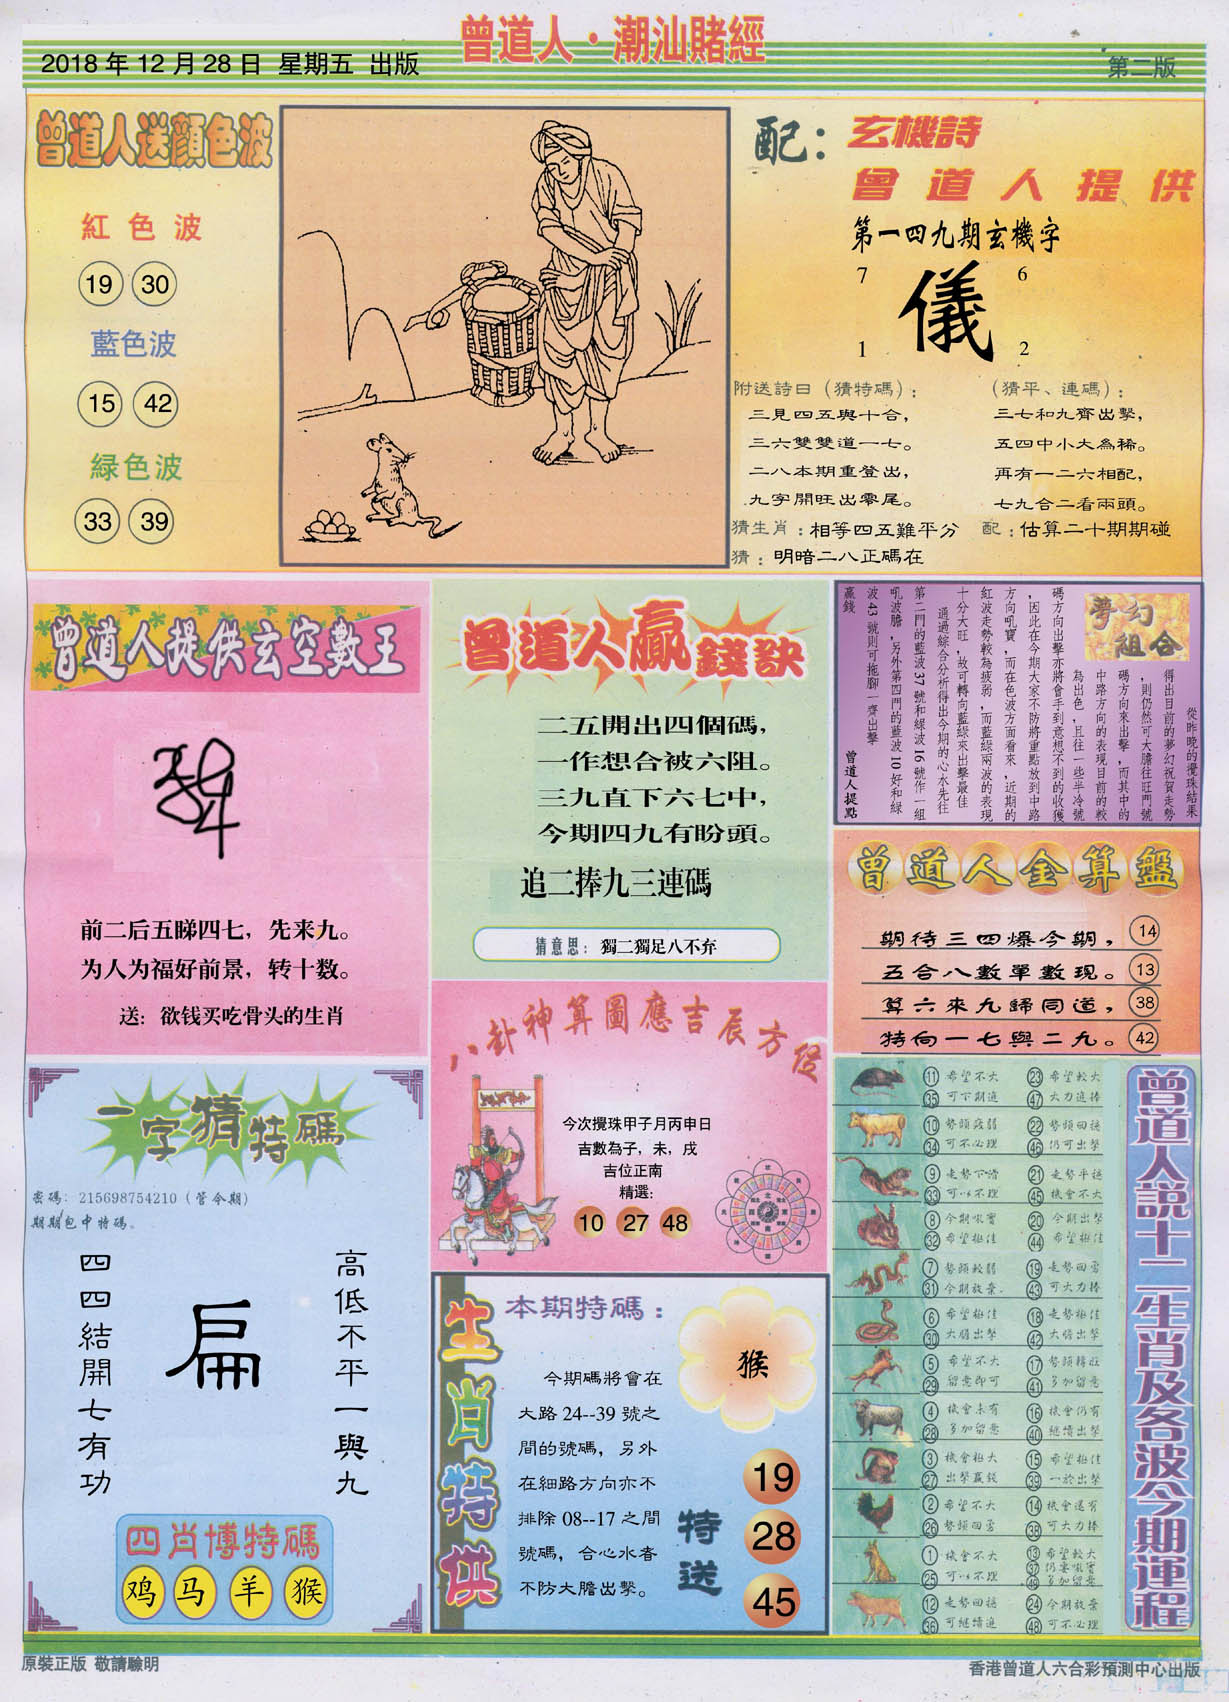 曾道人·潮汕賭經
2018年12月28日 星期五 出版
第二版
曾道人送顏色波
紅色波
19 30
藍色波
15 42
緑色波
33 39
配：玄機詩
曾道人提供
第一四九期玄機字
7 6
儀
1 2
附送詩曰（猜特碼）：
三見四五與十合，
三六雙雙道一七。
二八本期重登出，
九字開旺出零尾。
（猜平、連碼）：
三七和九齊出擊，
五四中小大為稀。
再有一二六相配，
七九合二看兩頭。
猜生肖：相等四五難平分
配：估算二十期期碰
猜：明暗二八正碼在
曾道人提供玄空數王
前二后五睇四七，先来九。
为人为福好前景，转十数。
送：欲钱买吃骨头的生肖
曾道人贏錢訣
二五開出四個碼，
一作想合被六阻。
三九直下六七中，
今期四九有盼頭。
追二捧九三連碼
猜意思：獨二獨足八不弃
夢幻組合
從昨晚的攪珠結果
得出目前的夢幻祝賀走勢
，則仍然可大膽往旺門號
碼方向來出擊，而其中的
中路方向的表現目前的較
為出色，且往一些半冷號
碼方向出擊亦將會手到意想不到的收獲
，因此在今期大家不防將重點放到中路
方向吼寶，而在色波方面看來，近期的
紅波走勢較為疲弱，而藍綠兩波的表現
十分大旺，故可轉向藍綠來出擊最佳
通過綜合分析得出今期的心水先往
第二門的藍波37號和綠波16號作一組
吼波膽，另外第四門的藍波10好和綠
波43號則可拖腳一齊出擊
贏錢
曾道人提點
曾道人金算盤
期待三四爆今期， 14
五合八數單數現。 13
算六來九歸同道， 38
特向一七與二九。 42
八卦神算圖應吉辰方位
今次攪珠甲子月丙申日
吉數為子，未，戌
吉位正南
精選：
10 27 48
一字猜特碼
密碼：215698754210（管今期）
期期包中特碼。
高低不平一與九
扁
四四結開七有功
四肖博特碼
鸡 马 羊 猴
生肖特供
本期特碼：
猴
今期碼將會在
大路24--39號之
間的號碼，另外
在細路方向亦不
排除08--17之間
號碼，合心水者
不防大膽出擊。
特送
19
28
45
曾道人説十二生肖及各波今期運程
11 希望不大 23 希望較大
35 可下期追 47 大力追捧
10 勢頭疲弱 22 勢頭回穩
34 可不必理 46 仍可出擊
9 走勢下滑 21 走勢平穩
33 可以不理 45 機會不大
8 今期吼寶 20 今期出擊
32 希望極佳 44 希望極佳
7 勢頭較弱 19 走勢回勇
31 今期放棄 43 可大力捧
6 希望極佳 18 走勢極佳
30 大膽出擊 42 大膽出擊
5 希望不大 17 勢頭轉旺
29 留意即可 41 多加留意
4 機會未有 16 機會仍有
28 多加留意 40 繼續出擊
3 機會極大 15 希望極佳
27 出擊贏錢 39 一於出擊
2 希望不大 14 機會還有
26 勢頭回勇 38 可大力捧
1 機會不大 13 希望較大
25 可以不理 37 仍要吼實
49 多加留意
12 走勢回穩 24 今期放棄
36 可繼續追 48 可不必理
原裝正版 敬請驗明
香港曾道人六合彩預測中心出版